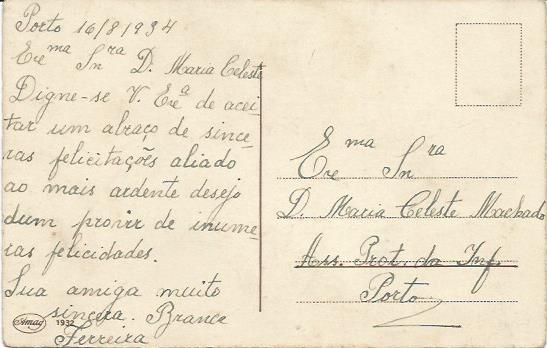 Porto 16/8/934
Exᵐᵃ Snʳᵃ D. Maria Celeste
Digne-se V. Exᵃ de acei-
tar um abraço de since-
ras felicitações aliado
ao mais ardente desejo
dum provir de inume-
ras felicidades.
Sua amiga muito
sincera. Branca
Ferreira
Amag 1932
Exᵐᵃ Snʳᵃ
D. Maria Celeste Machado
Ass. Prot. da Inf.
Porto